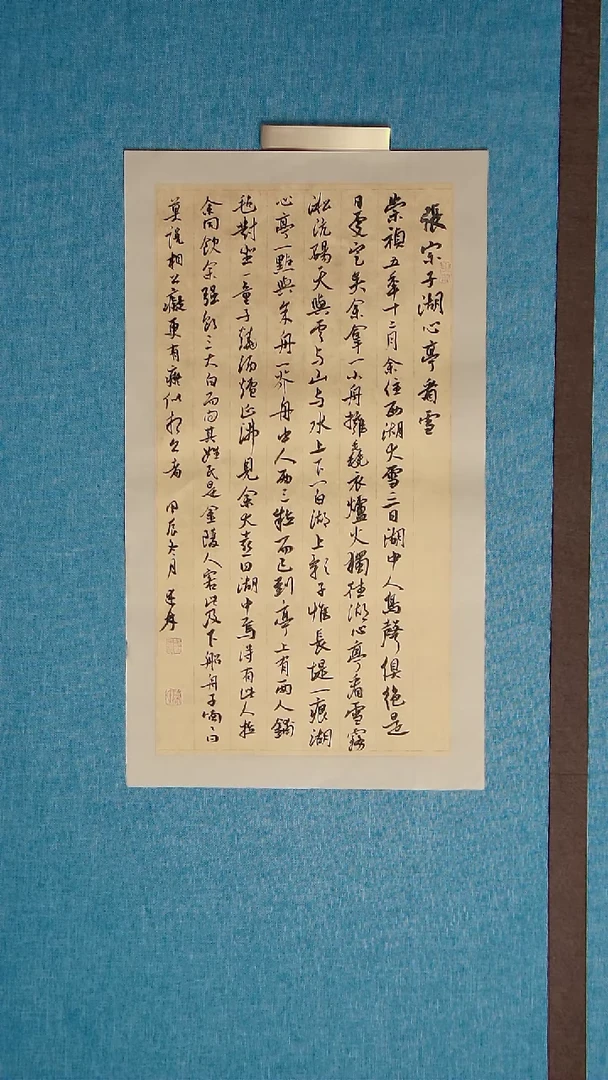 張宗子湖心亭看雪
崇禎五年十二月余住西湖大雪三日湖中人鳥聲俱絕是
日更定矣余拏一小舟擁毳衣爐火獨往湖心亭看雪霧
淞沆碭天與雲與山與水上下一白湖上影子惟長堤一痕湖
心亭一點與余舟一芥舟中人兩三粒而已到亭上有兩人鋪
氈對坐一童子燒酒爐正沸見余大喜曰湖中焉得有此人拉
余同飲余强飲三大白而問其姓氏是金陵人客此及下船舟子喃喃曰
莫說相公癡更有癡似相公者 甲辰冬月